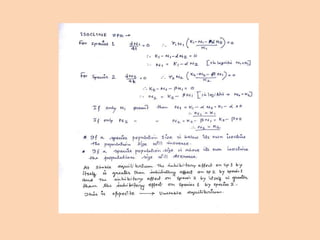 ISOCLINE
For Species 1 dN₁/dt = 0 ∴ r₁N₁ (K₁-N₁-αN₂)/K₁ = 0
∴ K₁-N₁-αN₂ = 0
∴ N₁ = K₁-αN₂
For Species 2 dN₂/dt = 0 ∴ r₂N₂ (K₂-N₂-βN₁)/K₂ = 0
∴ K₂-N₂-βN₁ = 0
∴ N₂ = K₂-βN₁
If only N₁ present then N₁ = K₁-αN₂ = K₁-α×0
∴ N₁ = K₁
If only N₂ " " N₂ = K₂-βN₁ = K₂-β×0
∴ N₂ = K₂
* If a species population size is below its own isocline
the population size will increase.
* If a species population size is above its own isocline
the population size will decrease.
At stable equilibrium the inhibitory effect on sp 1 by
itself is greater than inhibitory effect on sp 2 by species 1
and the inhibitory effect on species 2 by itself is greater
than the inhibitory effect on species 1 by species 2.
This is opposite → Unstable equilibrium.